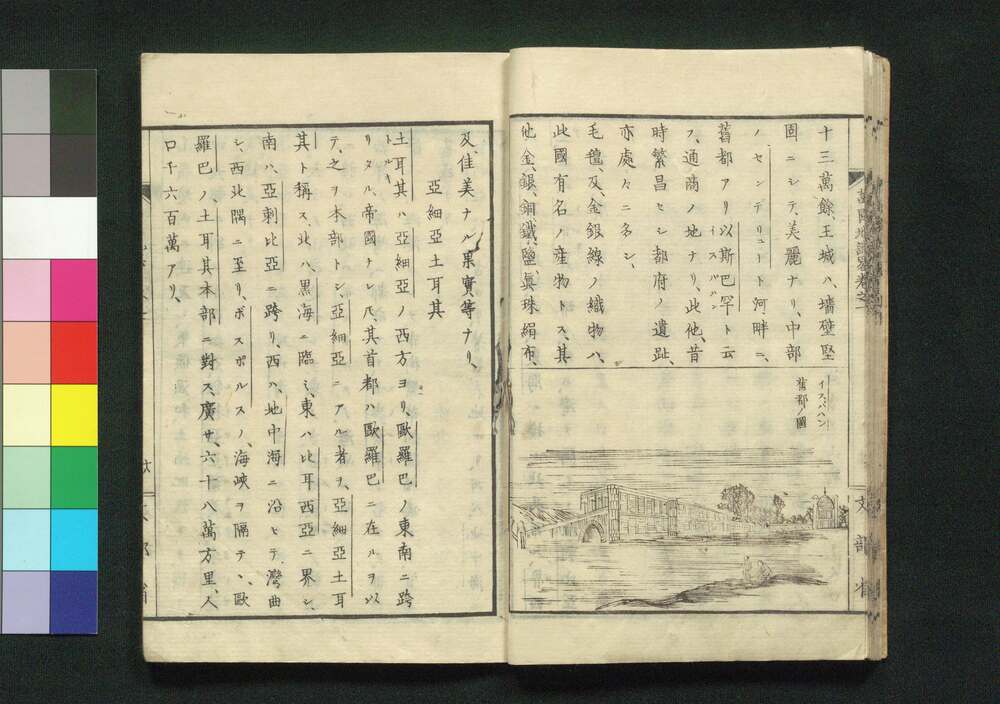 十三萬餘、王城ハ、墻壁堅
固ニシテ、美麗ナリ、中部
ノセンデリュート河畔ニ、
舊都アリ以斯巴罕ト云
イスパハン
フ、通商ノ地ナリ、此他、昔
時繁昌セシ都府ノ遺趾、
亦處々ニ名シ、
毛氈、及、金銀線ノ織物ハ、
此國有名ノ産物トス、其
他、金、銀、銅、鐵、鹽、眞珠、絹布、
イスパハン
舊都ノ圖
文部省
及、佳美ナル果實等ナリ、
亞細亞土耳其
土耳其ハ亞細亞ノ西方ヨリ、歐羅巴ノ東南ニ跨
トルキ
リタル、帝國ナレ𪜈、其首都ハ歐羅巴ニ在ルヲ以
テ、之ヲ本部トシ、亞細亞ニアル者ヲ、亞細亞土耳
其ト稱ス、北ハ、黒海ニ臨ミ、東ハ比耳西亞ニ界シ、
南ハ、亞剌比亞ニ跨リ、西ハ、地中海ニ沿ヒテ、灣曲
シ、西北隅ニ至リ、ボスポルスノ、海峽ヲ隔テヽ、歐
羅巴ノ、土耳其本部ニ對ス、廣サ、六十八萬方里、人
口千六百萬アリ、